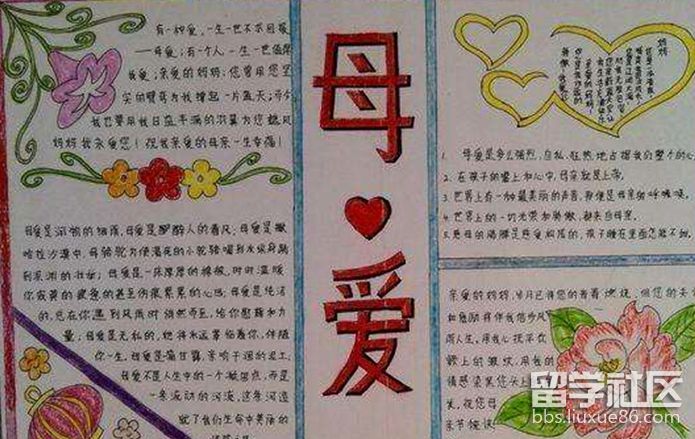 有一种爱,一生一世不求回报
——母爱;有个人,一生一世值得
我爱,亲爱的妈妈:您曾用您坚
实的臂弯为我撑起一片蓝天;而今
我也要用我日益丰满的羽翼为您遮风
妈妈我永爱您!祝我亲爱的母亲一生幸福!
母
爱
妈妈
1. 母爱是多么强烈,自私,狂热地占据我们整个的心
2. 在孩子的嘴上和心中,母亲就是上帝。
3. 世界上有一种最美丽的声音,那便是母亲的呼唤
4. 世界上的一切光荣和骄傲,都来自母亲。
5. 慈母的胳膊是慈爱构成的,孩子睡在里面怎能不甜
母爱是润物的细雨,母爱是醉人的春风;母爱是撒
哈拉沙漠中,母骆驼为使濒死的小骆驼喝到水纵身跳
到深渊的壮举;母爱是一床厚厚的棉被,时时温暖
你寂寞的疲惫的甚至伤痕累累的心。母爱是纯洁
的,总在你遇到风雨时悄然而至,给你慰藉和力
量;母爱是无私的,她将永远紧临着你,伴随
你一生。母爱是滴甘露,亲吻干涸的泥土,
母爱不是人生中的一个凝固点,而是
一条流动的河流,这条河造
就了我们生命中美丽的
亲爱的妈妈,岁月已将您的青春燃烧,但您的关
和勉励将伴我信步风
雨人生,用我心抚平您
额上的皱纹,用我的
情感染黑您头上
祝您母
亲节快乐
留学社区
bbs.liuxue86.com